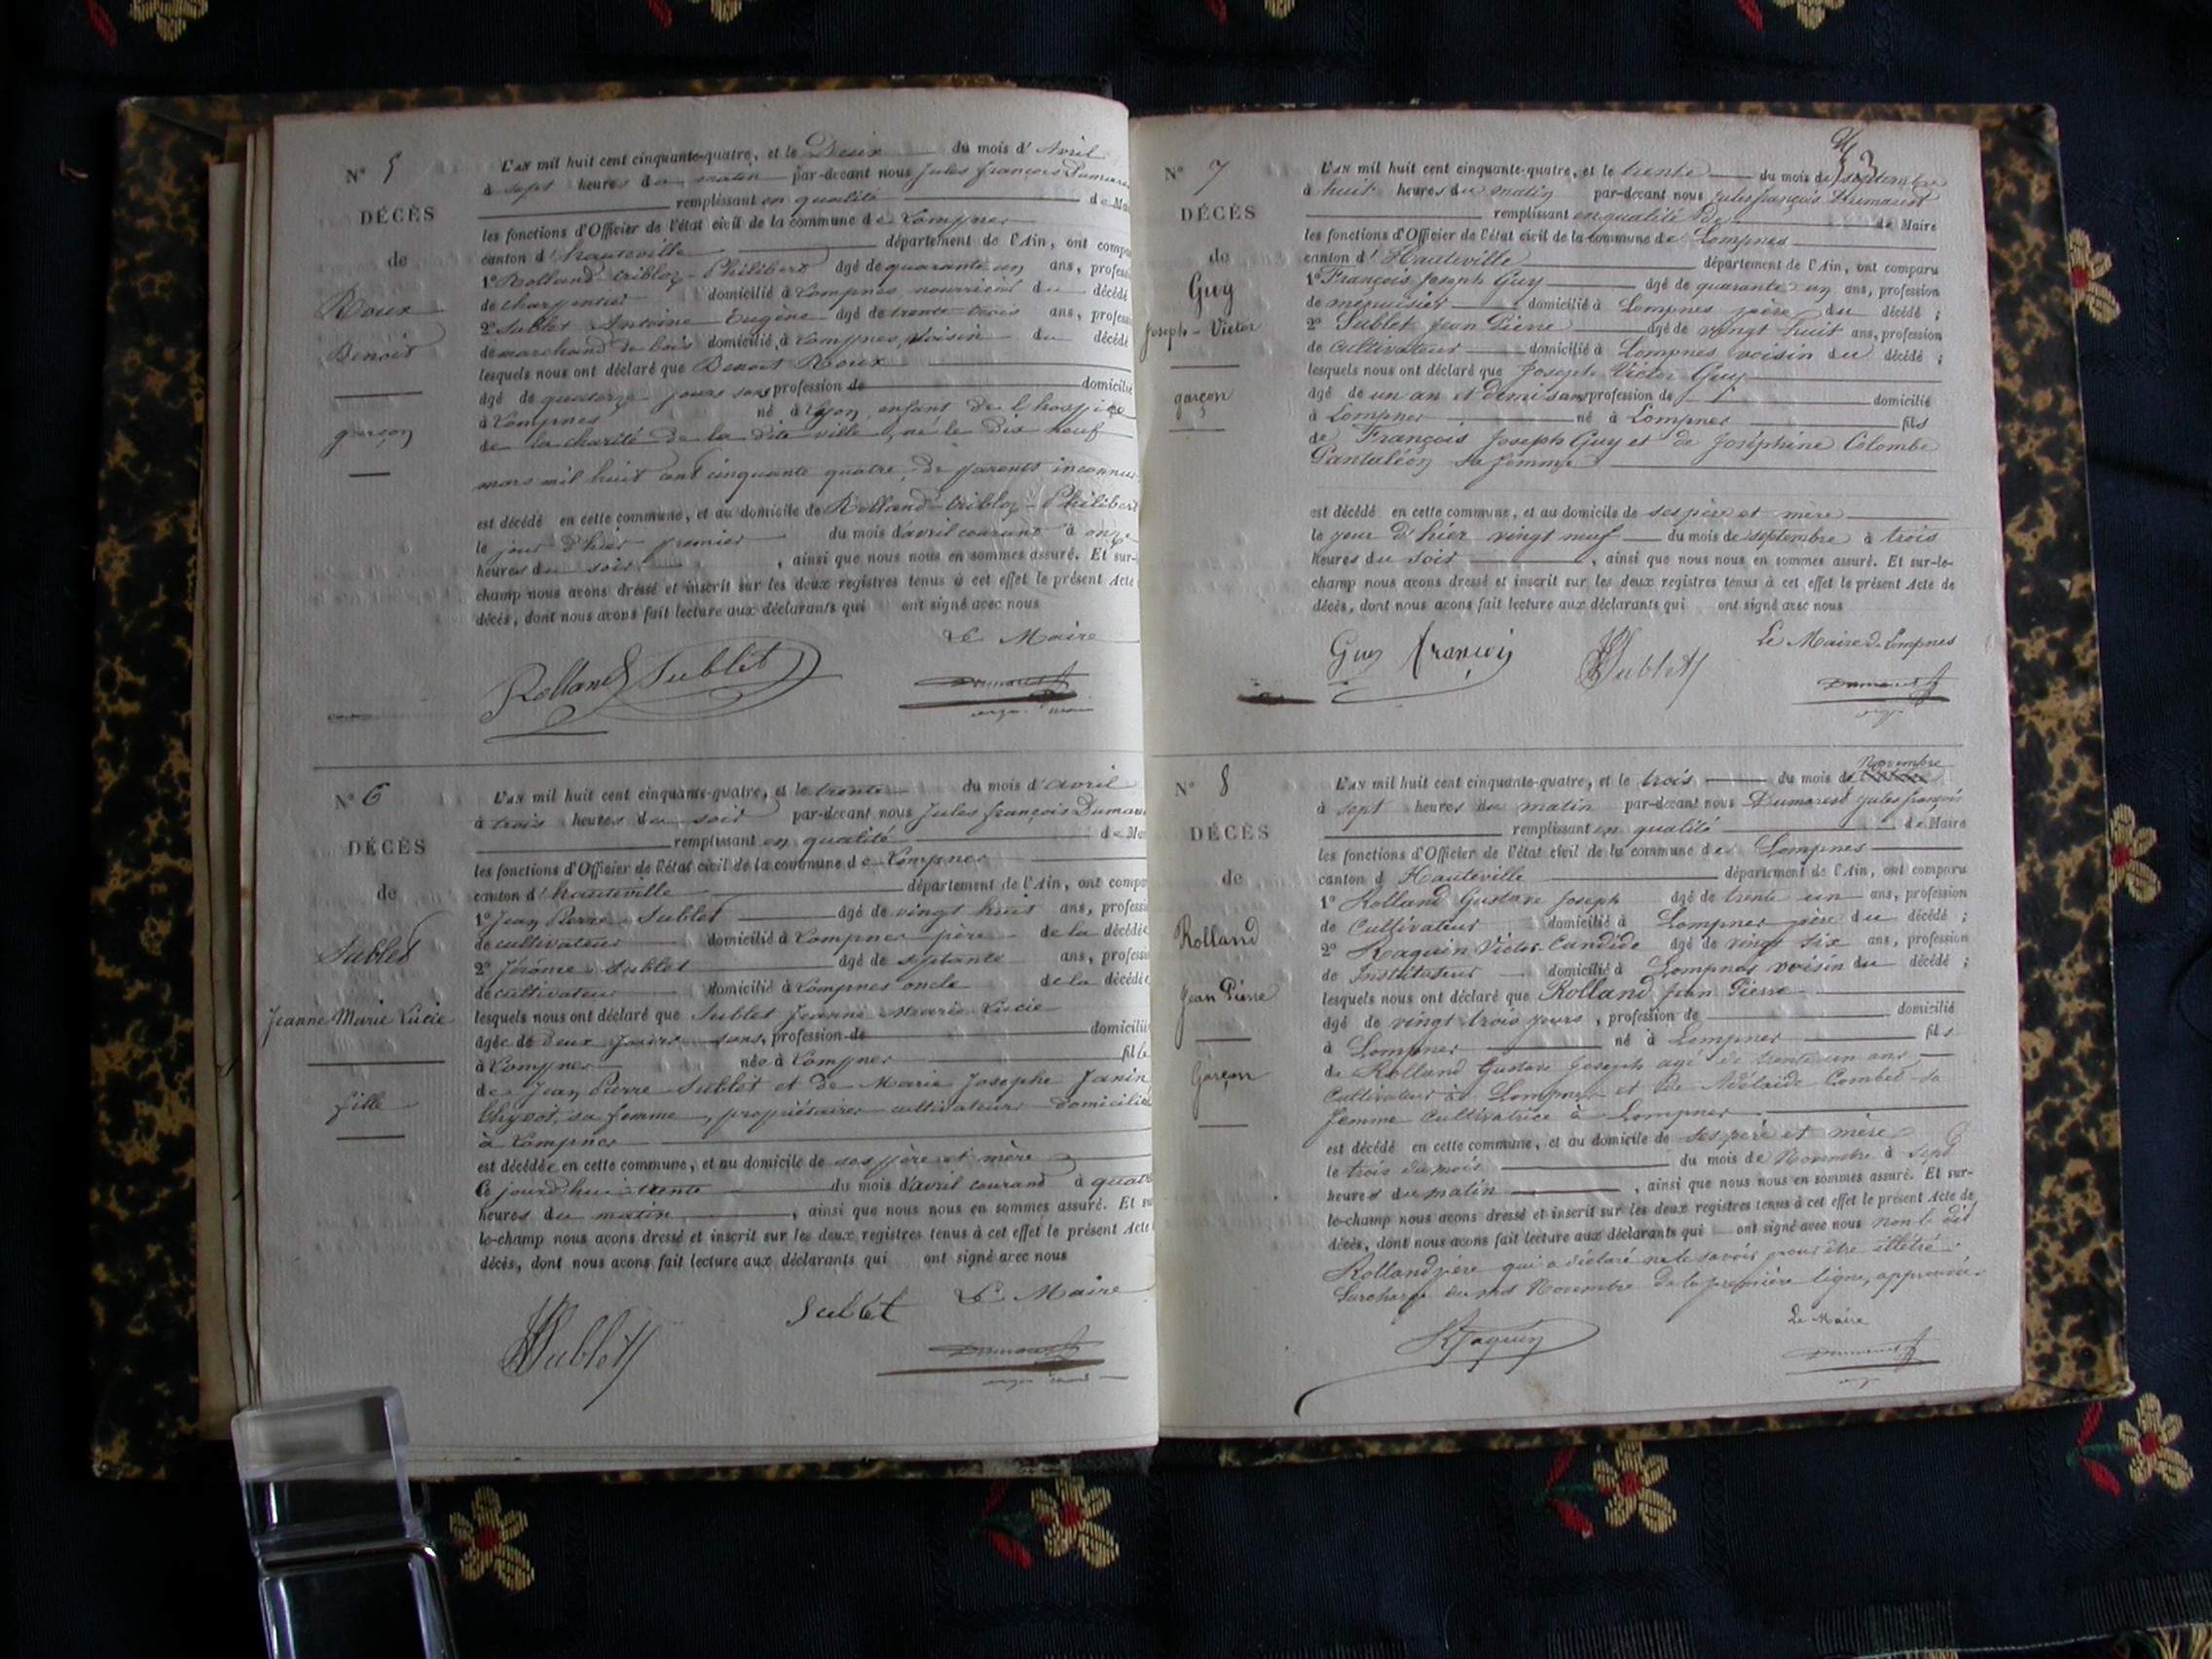 N° 5
DÉCÈS
de
Roux
Benoit
garçon
L'AN mil huit cent cinquante-quatre, et le Deux du mois d'Avril
à sept heures du matin par-devant nous Jules françois Dumares
remplissant en qualité de Ma
les fonctions d'Officier de l'état civil de la commune de Lompnes
canton d'hauteville département de l'Ain, ont compa
1° Rolland-tribloz-Philibert âgé de quarante un ans, profess
de charpentier domicilié à Lompnes nourricier du décédé
2° Sublet Antoine Eugène âgé de trente trois ans, profess
de marchand de bois domicilié à Lompnes, voisin du décédé
lesquels nous ont déclaré que Benoit Roux
âgé de quatorze jours sans profession de domicilié
à Lompnes né à Lyon, enfant de l'hospice
de la charité de la dite ville, né le dix neuf
mars mil huit cent cinquante quatre, de parents inconnus
est décédé en cette commune, et au domicile de Rolland-tribloz-Philibert
le jour d'hier premier du mois d'avril courant à onze
heures du soir, ainsi que nous nous en sommes assuré. Et sur-
champ nous avons dressé et inscrit sur les deux registres tenus à cet effet le présent Acte
décès, dont nous avons fait lecture aux déclarants qui ont signé avec nous
Le Maire
Rolland Sublet Dumarest
N° 6
DÉCÈS
de
Sublet
Jeanne Marie Lucie
fille
L'AN mil huit cent cinquante-quatre, et le trente du mois d'avril
à trois heures du soir par-devant nous Jules françois Dumares
remplissant en qualité de Mai
les fonctions d'Officier de l'état civil de la commune de Lompnes
canton d'hauteville département de l'Ain, ont compa
1° Jean Pierre Sublet âgé de vingt huit ans, professi
de cultivateur domicilié à Lompnes père de la décédée
2° Jérôme Sublet âgé de septante ans, professi
de cultivateur domicilié à Lompnes oncle de la décédée
lesquels nous ont déclaré que Sublet Jeanne Marie Lucie
âgée de Deux jours sans, profession de domicilié
à Lompnes née à Lompnes fille
de Jean Pierre Sublet et de Marie Josephe Janin
sa femme, propriétaires cultivateurs domiciliés
à Lompnes
est décédée en cette commune, et au domicile de ses père et mère
Ce jourd'hui trente du mois d'avril courant à quatre
heures du matin, ainsi que nous nous en sommes assuré. Et su
le-champ nous avons dressé et inscrit sur les deux registres tenus à cet effet le présent Acte
décès, dont nous avons fait lecture aux déclarants qui ont signé avec nous
Le Maire
Sublet Sublet Dumarest
N° 7
DÉCÈS
de
Guy
Joseph-Victor
garçon
L'AN mil huit cent cinquante-quatre, et le trente du mois de septembre
à huit heures du matin par-devant nous jules françois Dumarest
remplissant en qualité de de Maire
les fonctions d'Officier de l'état civil de la commune de Lompnes
canton d'Hauteville département de l'Ain, ont comparu
1° François Joseph Guy âgé de quarante un ans, profession
de menuisier domicilié à Lompnes père du décédé ;
2° Sublet Jean Pierre âgé de vingt huit ans, profession
de cultivateur domicilié à Lompnes voisin du décédé ;
lesquels nous ont déclaré que Joseph Victor Guy
âgé de un an et demi sans profession de domicilié
à Lompnes né à Lompnes fils
de François Joseph Guy et de Joséphine Colombe
Pantaléon sa femme
est décédé en cette commune, et au domicile de ses père et mère
le jour d'hier vingt neuf du mois de septembre à trois
heures du soir, ainsi que nous nous en sommes assuré. Et sur-le-
champ nous avons dressé et inscrit sur les deux registres tenus à cet effet le présent Acte de
décès, dont nous avons fait lecture aux déclarants qui ont signé avec nous
Le Maire de Lompnes
Guy françois Sublet Dumarest
N° 8
DÉCÈS
de
Rolland
Jean Pierre
Garçon
Novembre
L'AN mil huit cent cinquante-quatre, et le trois du mois de
à sept heures du matin par-devant nous Dumarest jules françois
remplissant en qualité de Maire
les fonctions d'Officier de l'état civil de la commune de Lompnes
canton d Hauteville département de l'Ain, ont comparu
1° Rolland Gustave Joseph âgé de trente un ans, profession
de Cultivateur domicilié à Lompnes père du décédé ;
2° Raquin Victor Candide âgé de vingt six ans, profession
de Instituteur domicilié à Lompnes voisin du décédé ;
lesquels nous ont déclaré que Rolland Jean Pierre
âgé de vingt trois jours, profession de domicilié
à Lompnes né à Lompnes fils
de Rolland Gustave Joseph agé de trente un ans,
Cultivateur à Lompnes et de Adélaïde Combet sa
femme cultivatrice à Lompnes
est décédé en cette commune, et au domicile de ses père et mère
le trois du mois du mois de Novembre à sept
heures du matin, ainsi que nous nous en sommes assuré. Et sur-
le-champ nous avons dressé et inscrit sur les deux registres tenus à cet effet le présent Acte de
décès, dont nous avons fait lecture aux déclarants qui ont signé avec nous non le dit
Rolland père qui a déclaré ne le savoir pour être illétré.
Surcharge du mot Novembre de la première ligne, approuvée.
Le Maire
Raquin Dumarest